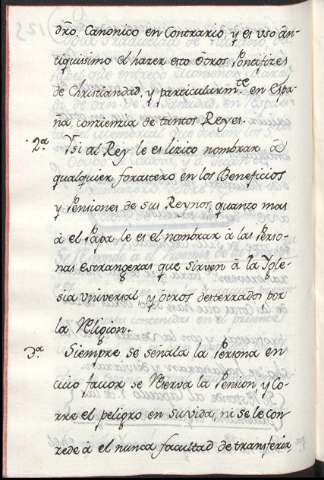 dřo. Canonico en Contrario, y es uso ãn-
tiquissimo el hazer esto õtros Pontifizès
de Christiandad, y particularmte. en Espa-
ña conzienzia de tantos Reyes.
2ª Ysi al Rey le es lizito nombrar â
qualquier forastero en los Beneficios
y Pensiones de sus Reynos, quanto mas
à el Papa le es el nombrar â las Perso-
nas estrangeras que sirven â la Ygle-
sia universal, y õtros desterrados por
la Religion.
3ª Siempre se señala la Persona en
cuio fauor se Reserva la Pension y Co-
rre el peligro en su vida, ni se le con-
zede â el nunca facultad de transferir